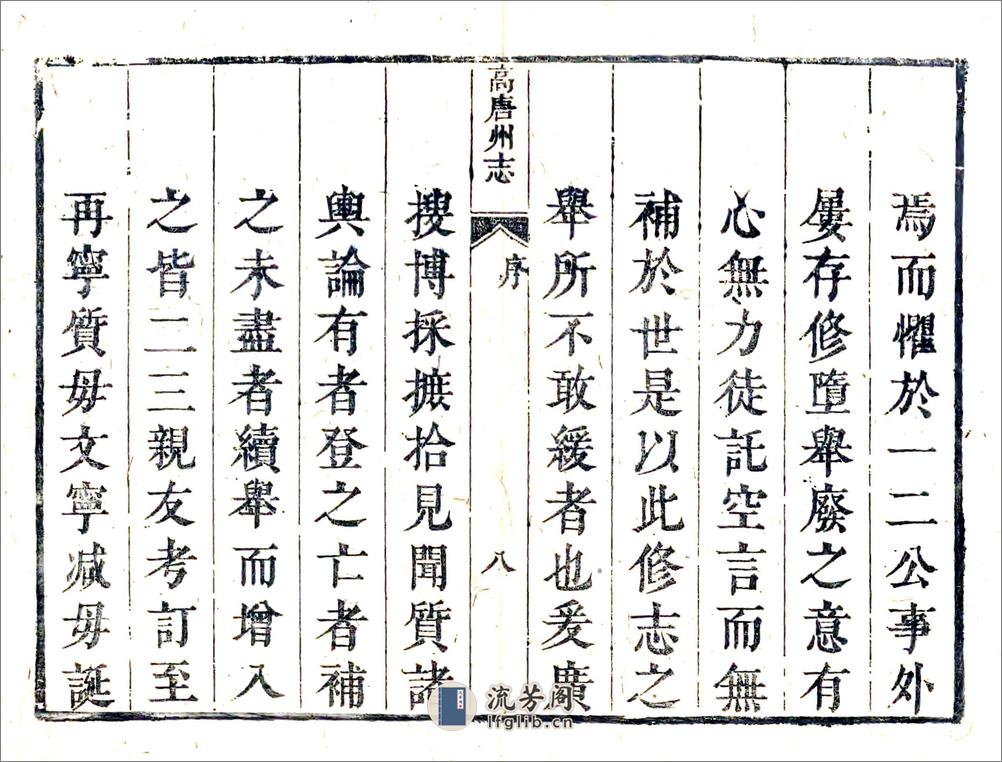 焉而懼於一二公事外
屢存修墮舉廢之意有
心無力徒託空言而無
補於世是以此修志之
舉所不敢緩者也爰廣
高唐州志
序
八
搜博採摭拾見聞質諸
輿論有者登之亡者補
之未盡者續舉而增入
之皆二三親友考訂至
再寧質毋文寧減毋誕
流芳阁
lfglib.cn